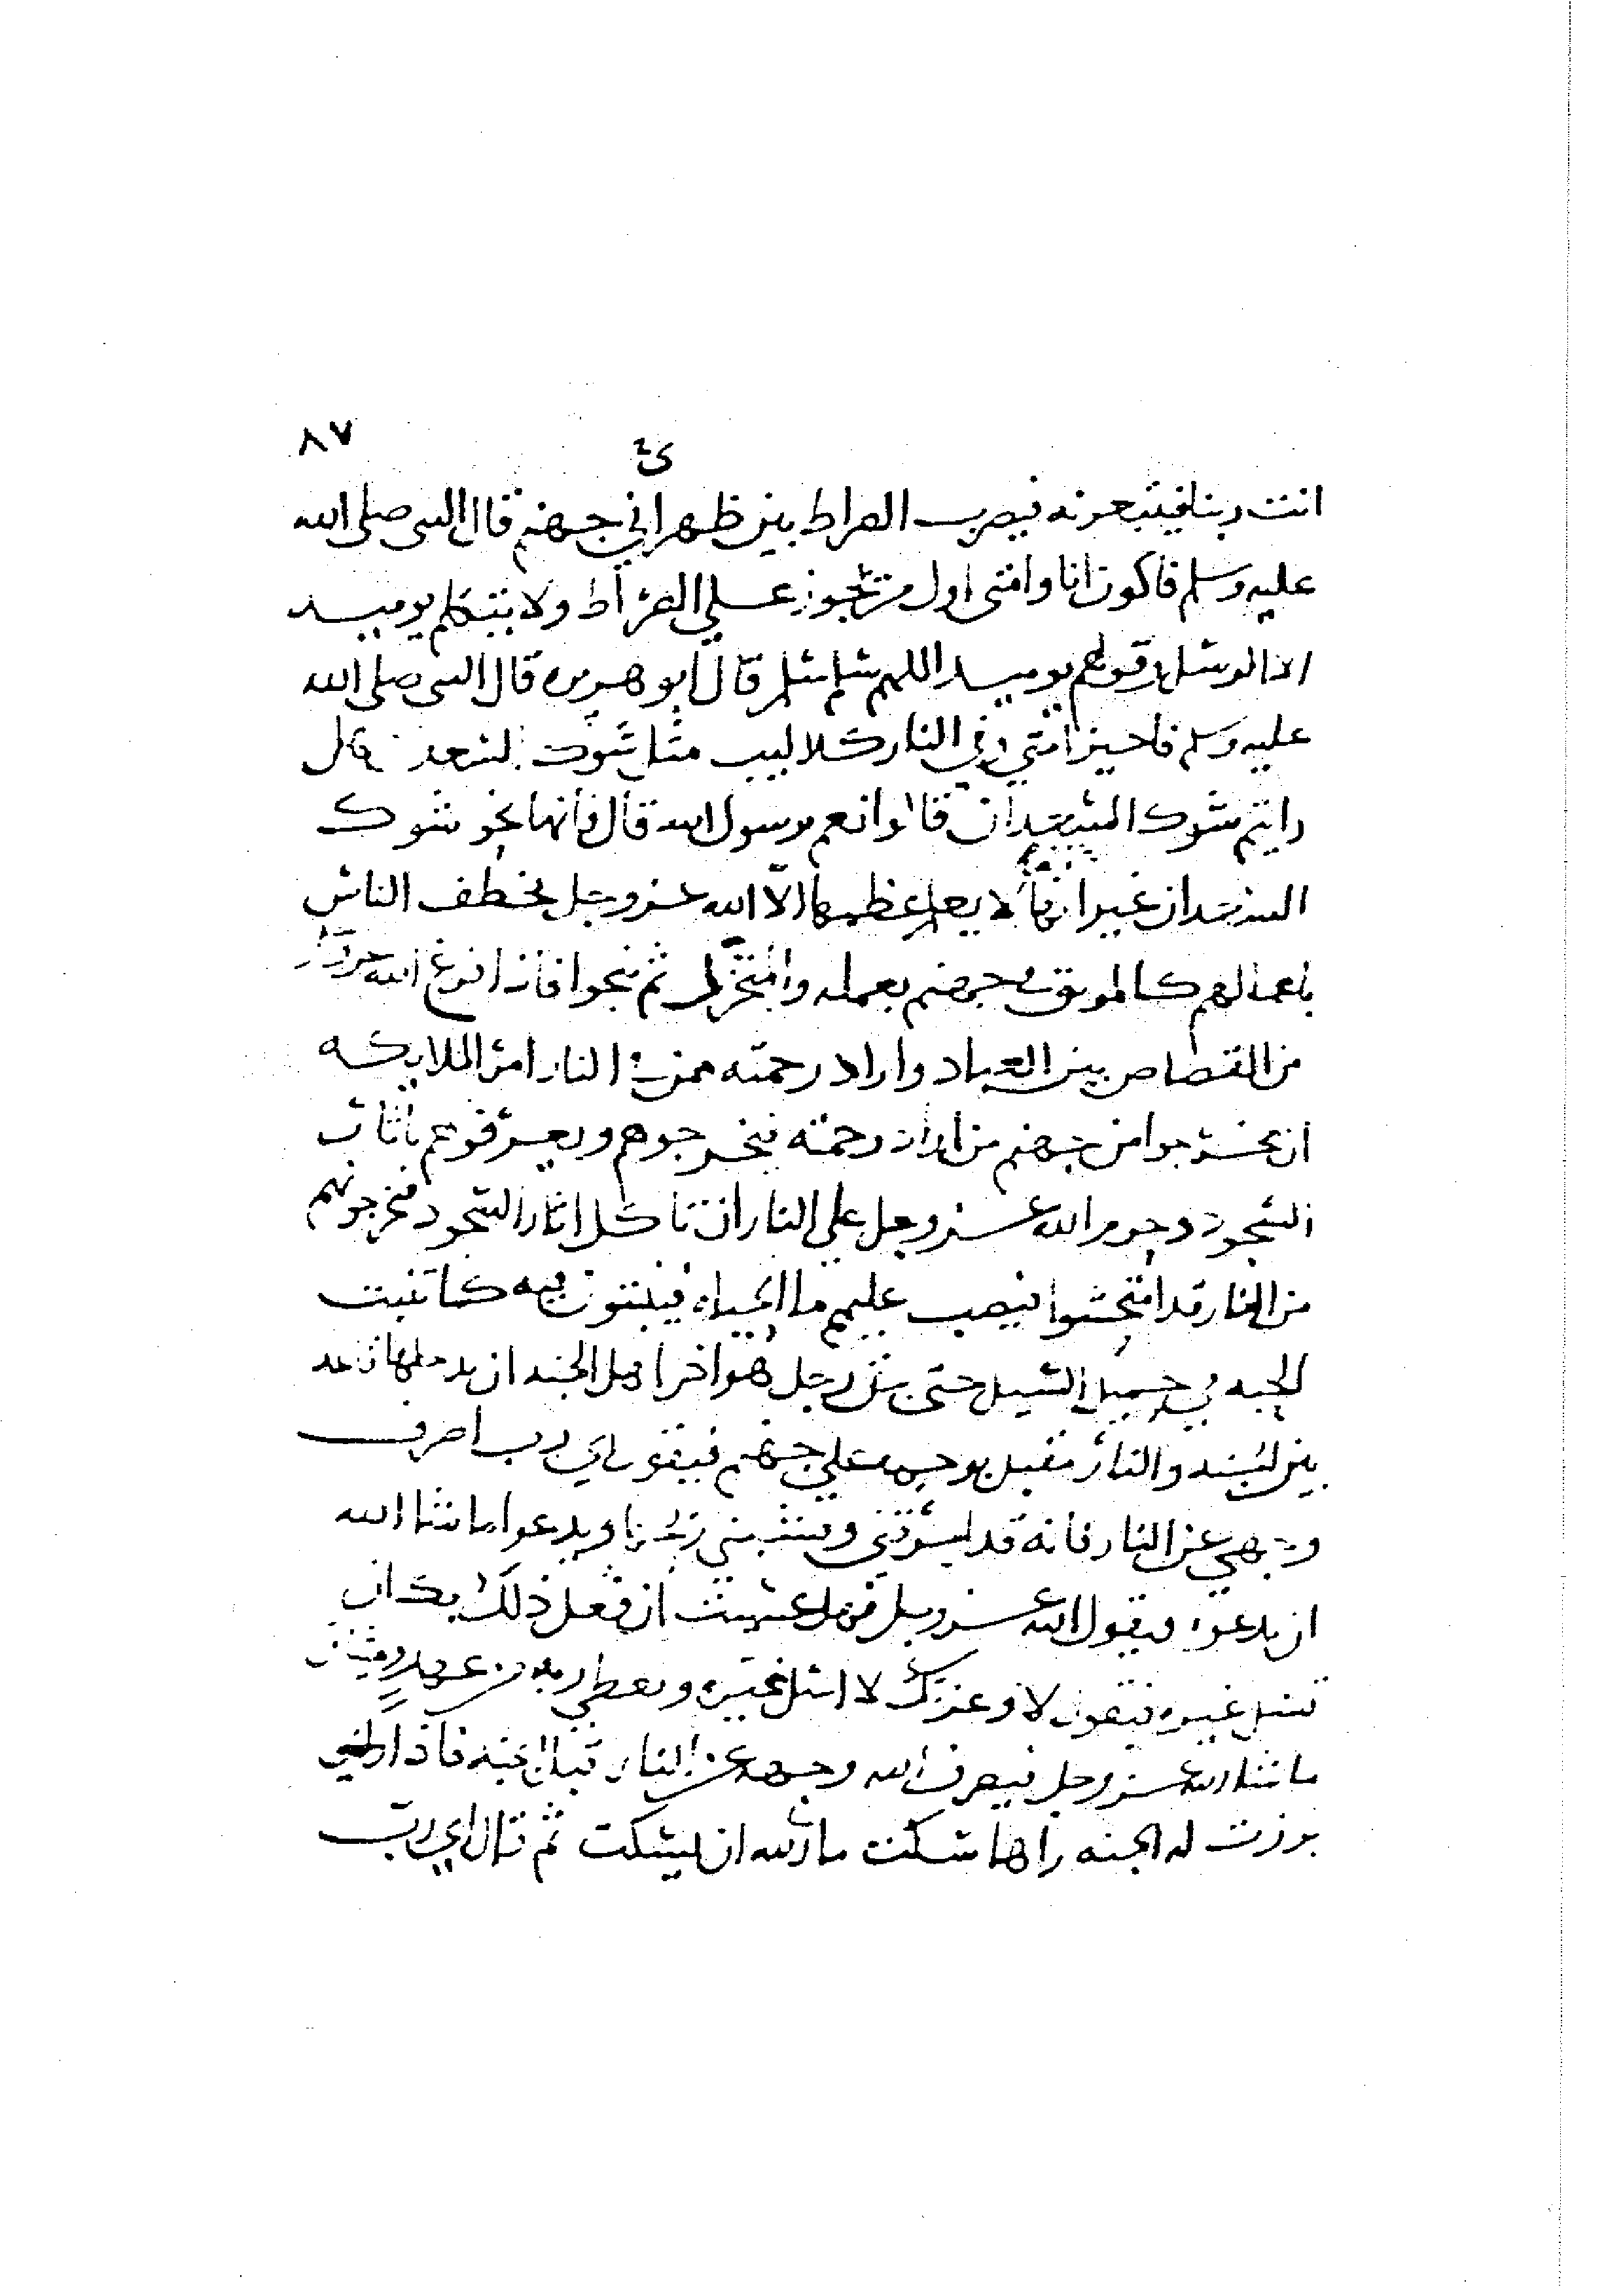 ٨٧
انت ربنا فيتبعونه فيضرب الصراط بين ظهراني جهنم قال النبي صلى الله
عليه وسلم فاكون انا وامتي اول من يجوز علي الصراط ولا يتكلم يوميد
الا الرسل وقولهم يوميد اللهم سلم سلم قال ابو هريره قال النبي صلى الله
عليه وسلم في النار كلاليب مثل شوك السعد قال
رايتم شوك السعدان قالوا نعم يرسول الله قال فانها نحو شوك
السعدان غير انها لا يعلم عظمها الا الله عز وجل تخطف الناس
باعمالهم كالموبق جهنم بعمله والمخردل ثم ينجوا فاذا افرغ الله عز وجل
من القصاص بين العباد واراد رحمته ممن في النار امر الملايكه
ان يخرجوا من جهنم من اراد رحمته فيخرجوهم ويعرفوهم باثار
السجود وحرم الله عز وجل علي النار ان تاكل اثار السجود فيخرجونهم
من النار قد امتحشوا فيصب عليهم ما الحياه فينبتون فيه كما تنبت
الحبه في حميل السيل حتى رجل هو اخر اهل الجنه ان يدخلها قاعد
بين الجنه والنار مقبل بوجهه علي جهنم فيقول اي رب اصرف
وجهي عن النار فانه قد ويدعوا ما شا الله
ان يدعوا فيقول الله عز وجل فهل عسيت ان فعل ذلك بك ان
تسل غيره فيقول لا وعزتك لا اسل غيره ويعطي ربه من عهد وميثاق
ما شا الله عز وجل فيصرف الله وجهه عن النار قبل الجنه فاذا
برزت له الجنه راها سكت ما شا الله ان يسكت ثم قال اي رب